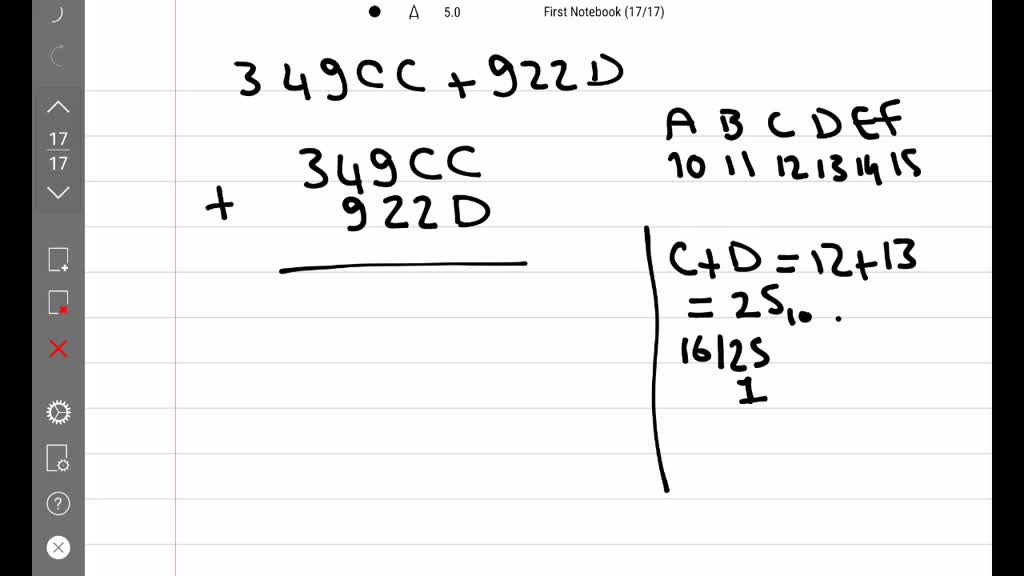 5.0 First Notebook (17/17)
349CC + 922D
A B C D E F
10 11 12 13 14 15
17
17
349CC
+ 922D
C+D = 12+13
= 25₁₀ .
16|25
1
?